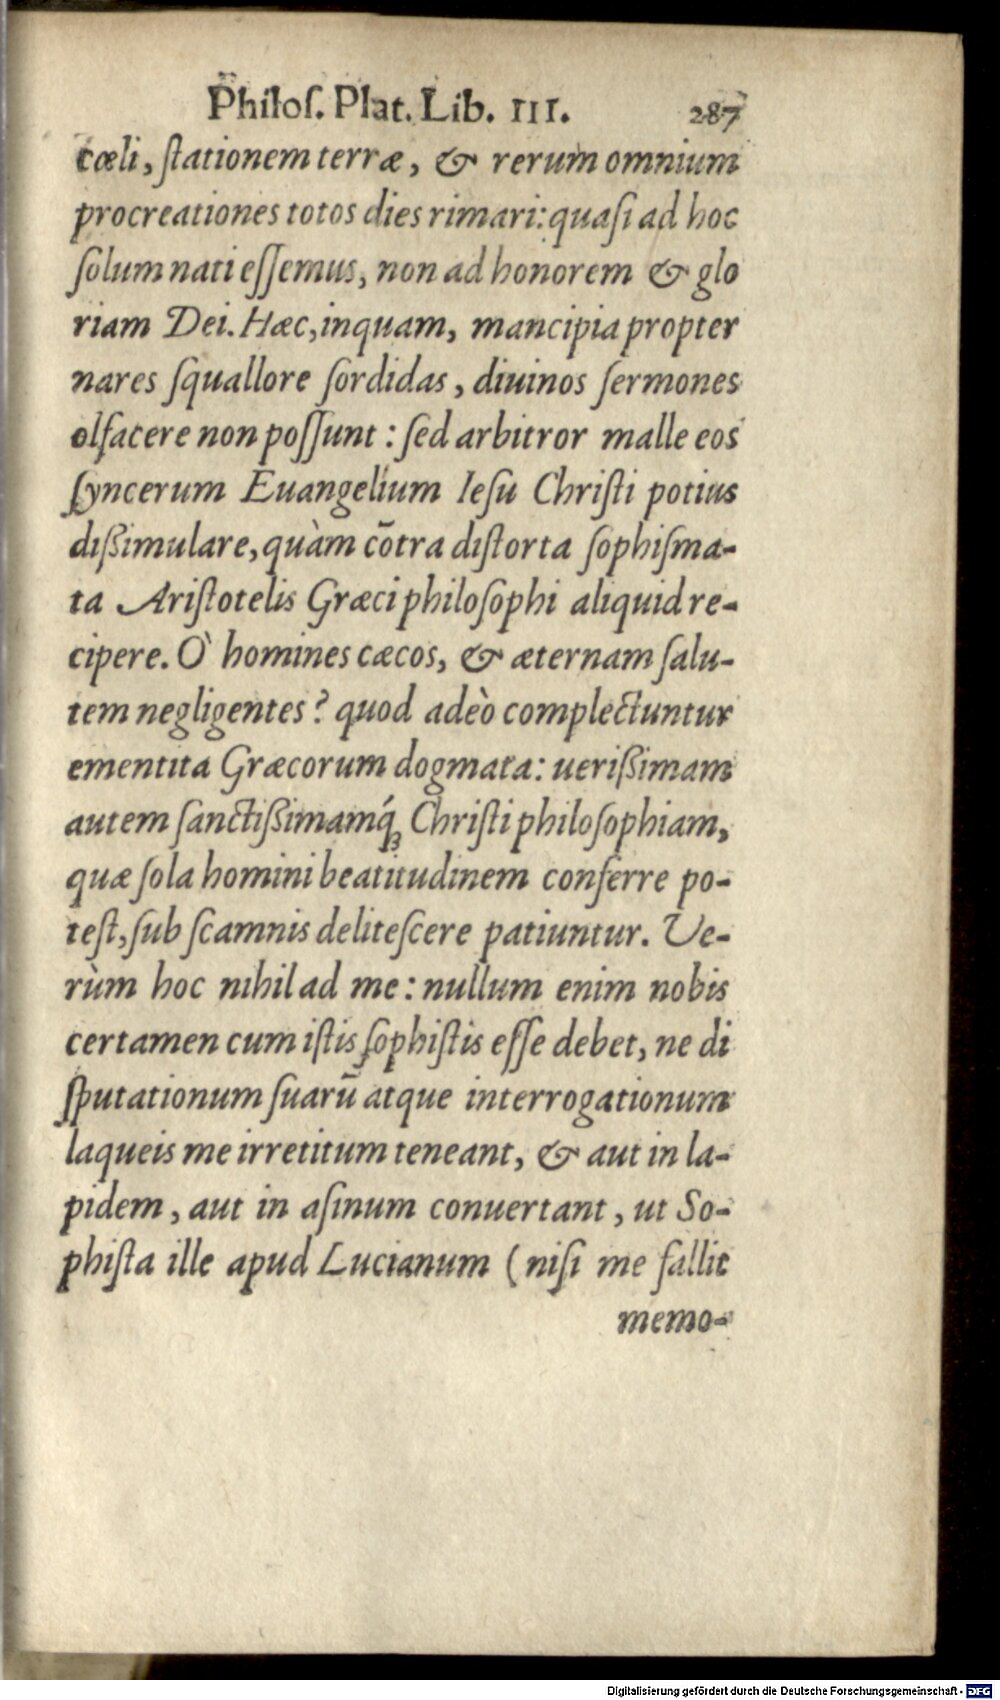 Philoſ. Plat. Lib. III. 287
cœli, ſtationem terræ, & rerum omnium
procreationes totos dies rimari: quaſi ad hoc
ſolum nati eſſemus, non ad honorem & glo
riam Dei. Hæc, inquam, mancipia propter
nares ſquallore ſordidas, diuinos ſermones
olfacere non poſſunt: ſed arbitror malle eos
ſyncerum Euangelium Ieſu Chriſti potius
dißimulare, quàm cōtra diſtorta ſophiſma-
ta Ariſtotelis Græci philoſophi aliquid re-
cipere. Ò homines cæcos, & æternam ſalu-
tem negligentes? quod adeò complectuntur
ementita Græcorum dogmata: uerißimam
autem ſanctißimamq́; Chriſti philoſophiam,
quæ ſola homini beatitudinem conferre po-
teſt, ſub ſcamnis deliteſcere patiuntur. Ve-
rùm hoc nihil ad me: nullum enim nobis
certamen cum iſtis ſophiſtis eſſe debet, ne di
ſputationum ſuarū atque interrogationum
laqueis me irretitum teneant, & aut in la-
pidem, aut in aſinum conuertant, ut So-
phiſta ille apud Lucianum (niſi me fallit
memo-
Digitalisierung gefördert durch die Deutsche Forschungsgemeinschaft - DFG